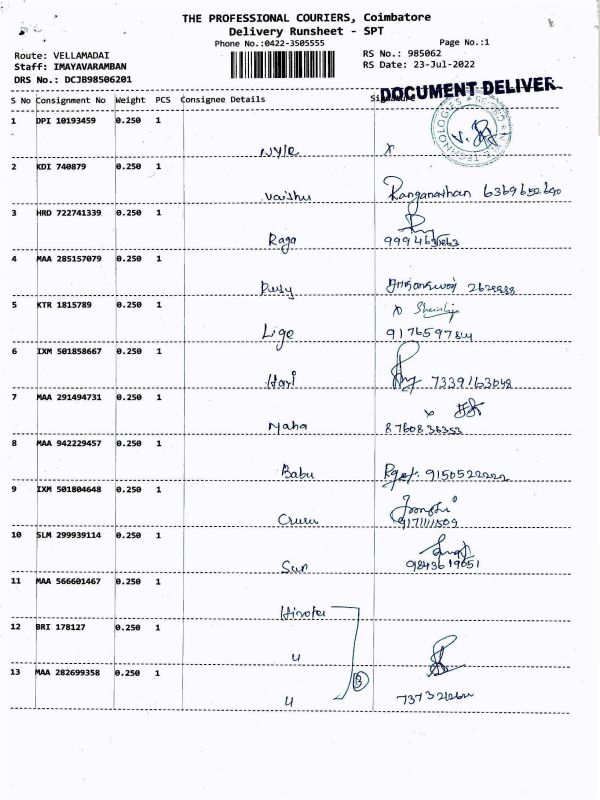 THE PROFESSIONAL COURIERS, Coimbatore
Delivery Runsheet - SPT
Phone No.:0422-3505555
Page No.:1
Route: VELLAMADAI
RS No.: 985062
Staff: IMAYAVARAMBAN
RS Date: 23-Jul-2022
DRS No.: DCJB98506201
DOCUMENT DELIVER
S No Consignment No Weight PCS Consignee Details Signature
1 DPI 10193459 0.250 1
x
2 KDI 740879 0.250 1
Vaishu Ranganathan
3 HRD 722741339 0.250 1
Raga
4 MAA 285157079 0.250 1
5 KTR 1815789 0.250 1
Lige
6 IXM 501858667 0.250 1
Hari 7339163048
7 MAA 291494731 0.250 1
x
Maha 8760836353
8 MAA 942229457 0.250 1
Babu 9150522222
9 IXM 501804648 0.250 1
10 SLM 299939114 0.250 1
Sun 9843619051
11 MAA 566601467 0.250 1
12 BRI 178127 0.250 1
13 MAA 282699358 0.250 1